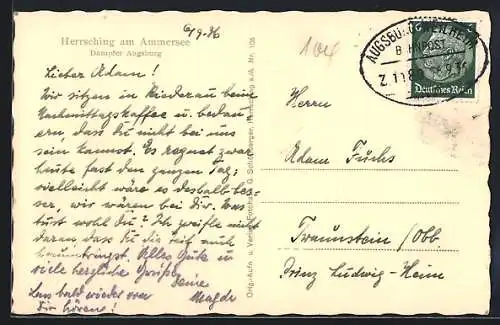 6/9.36
Herrsching am Ammersee
Dampfer Augsburg
Lieber Adam!
Wir sitzen in Riederau beim
Nachmittagskaffee u. bedau-
ern, dass Du nicht bei uns
sein kannst. Es regnet zwar
heute fast den ganzen Tag;
vielleicht wäre es deshalb bes-
ser, wir wären bei Dir. Was
tust wohl Du? Ich zweifle nicht
daran, dass Du die Zeit auch
herumbringst. Alles Gute u
viele herzliche Grüsse
Deine
Magda
Lass bald wieder von
Dir hören!
Orig.-Aufn. u. Verlag
104
AUGSBURG-WEILHEIM
BAHNPOST
Z. 1118
Deutsches Reich
Herrn
Adam Fuchs
Traunstein /Obb
Prinz Ludwig-Heim